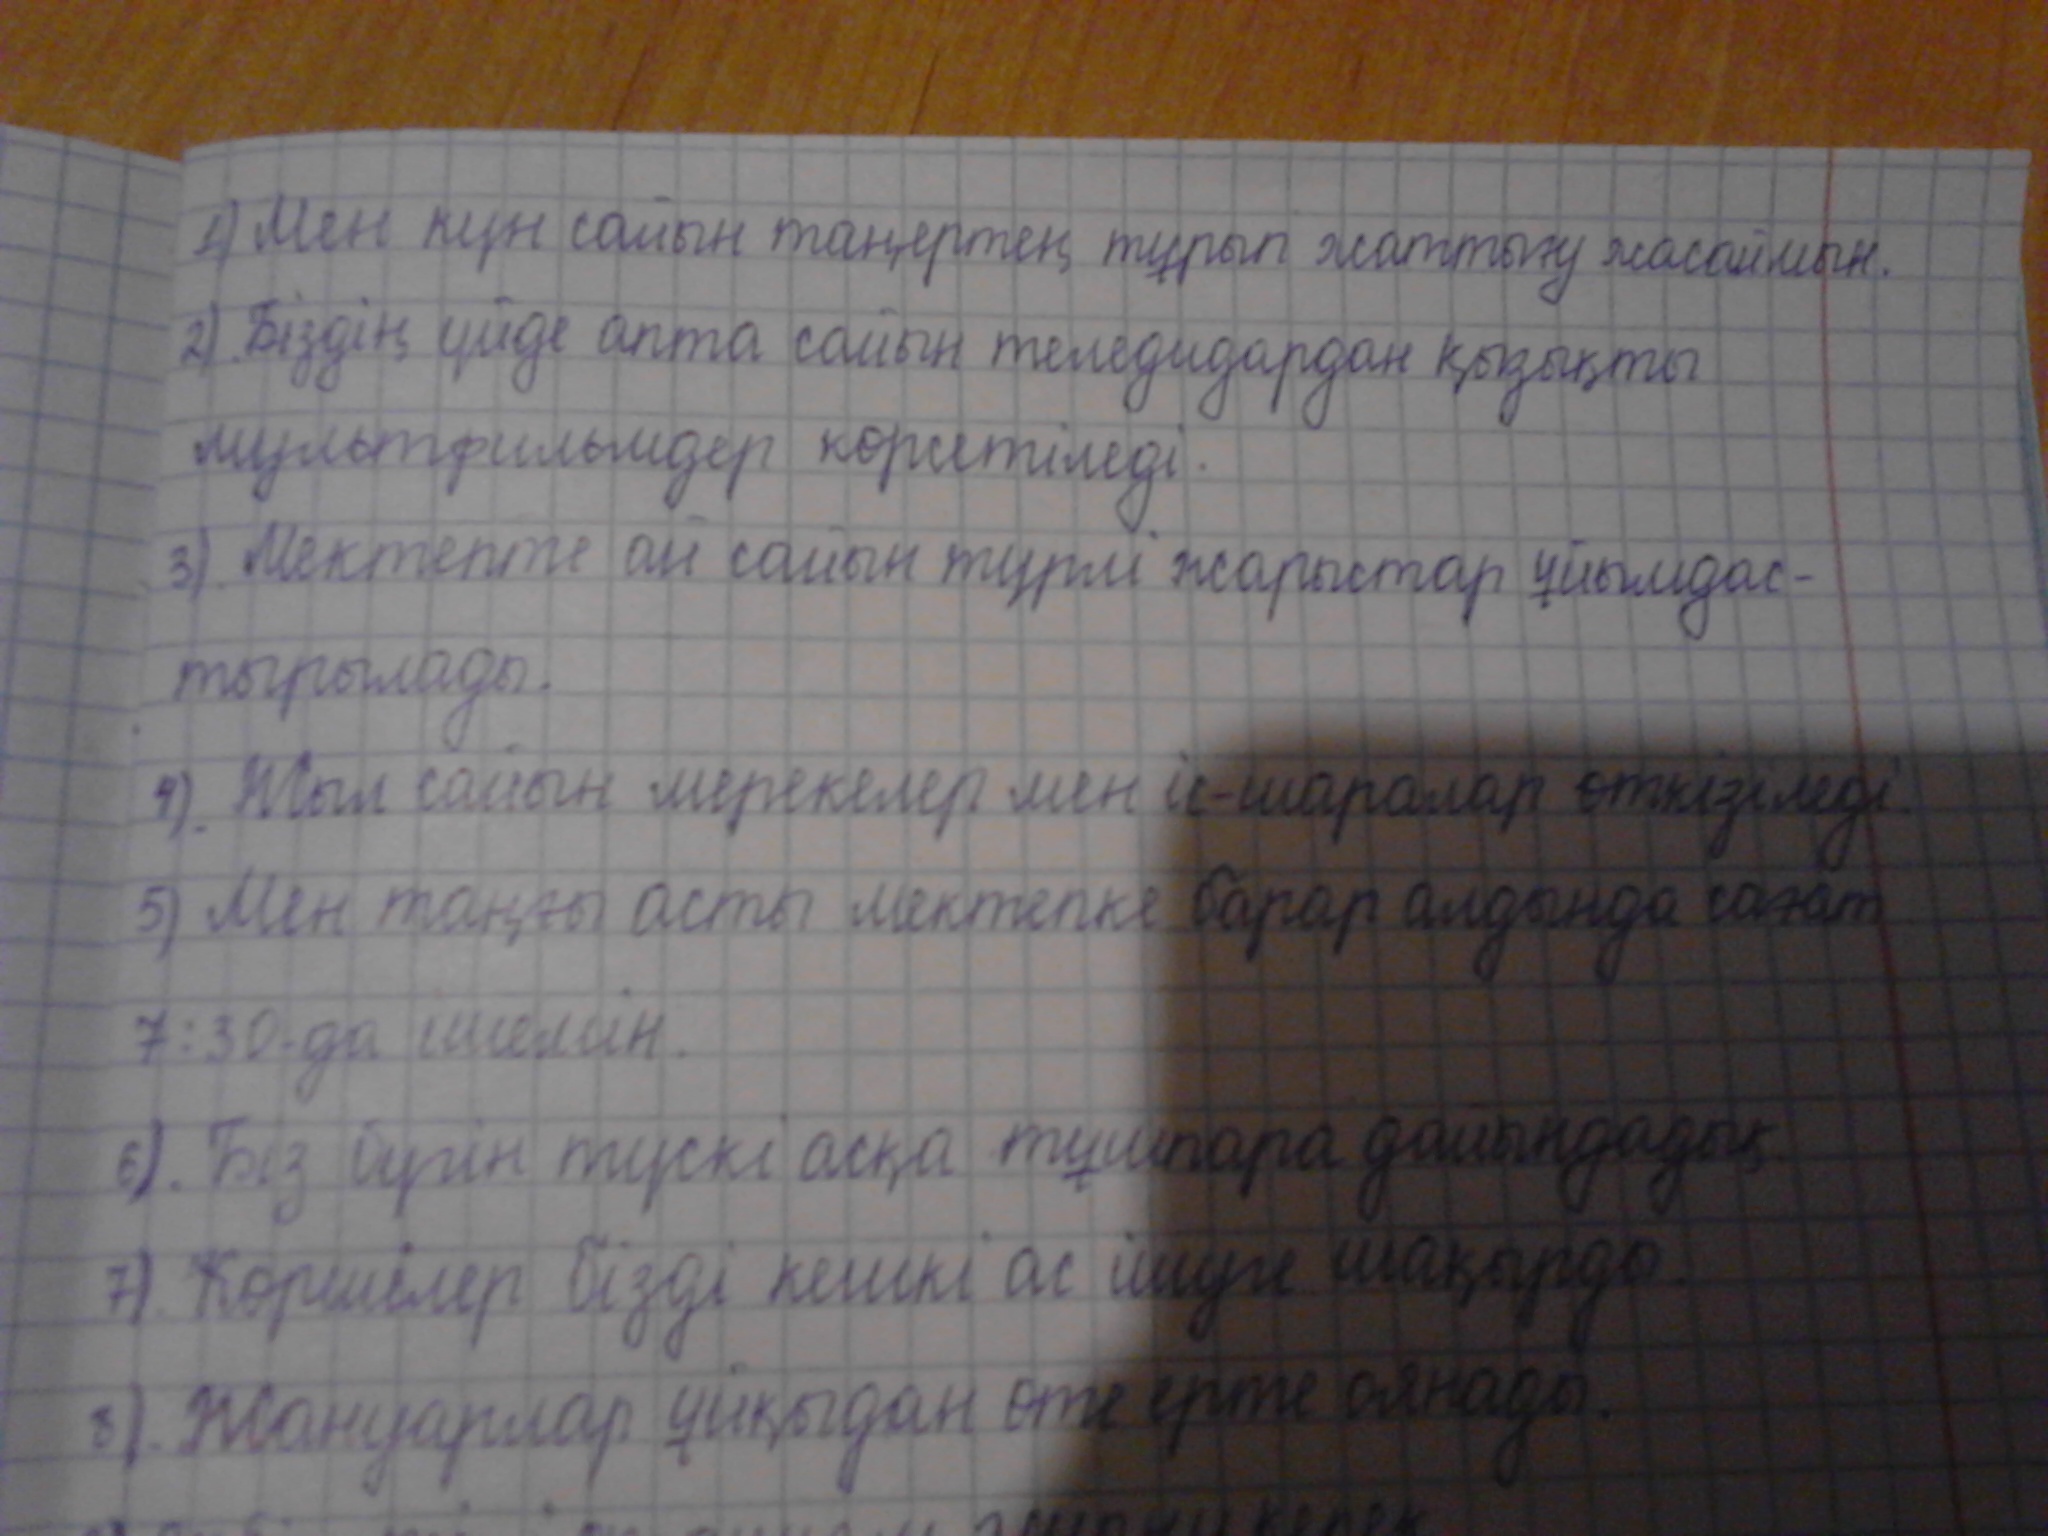 1) Мен күн сайын таңертең тұрып жаттығу жасаймын.
2) Біздің үйде апта сайын теледидардан қызықты
мультфильмдер көрсетіледі.
3) Мектепте ай сайын түрлі жарыстар ұйымдас-
тырылады.
4). Жыл сайын мерекелер мен іс-шаралар өткізіледі.
5) Мен таңғы асты мектепке барар алдында сағат
7:30-да ішемін.
6). Біз бүгін түскі асқа тұшпара дайындадық.
7). Көршілер бізді кешкі ас ішуге шақырды.
8). Жануарлар ұйқыдан өте ерте оянады.
керек